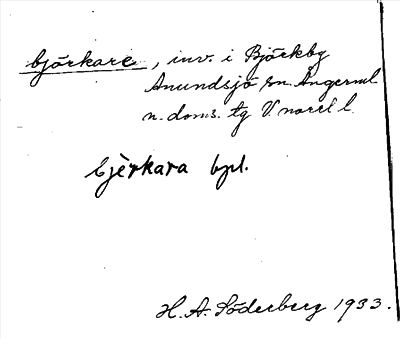 björkare, inv. i Björkby
Anundsjö sn. Ångerml
n. doms. tg V. norrl l.
bjèrkara bpl.
H. A. Söderberg 1933.